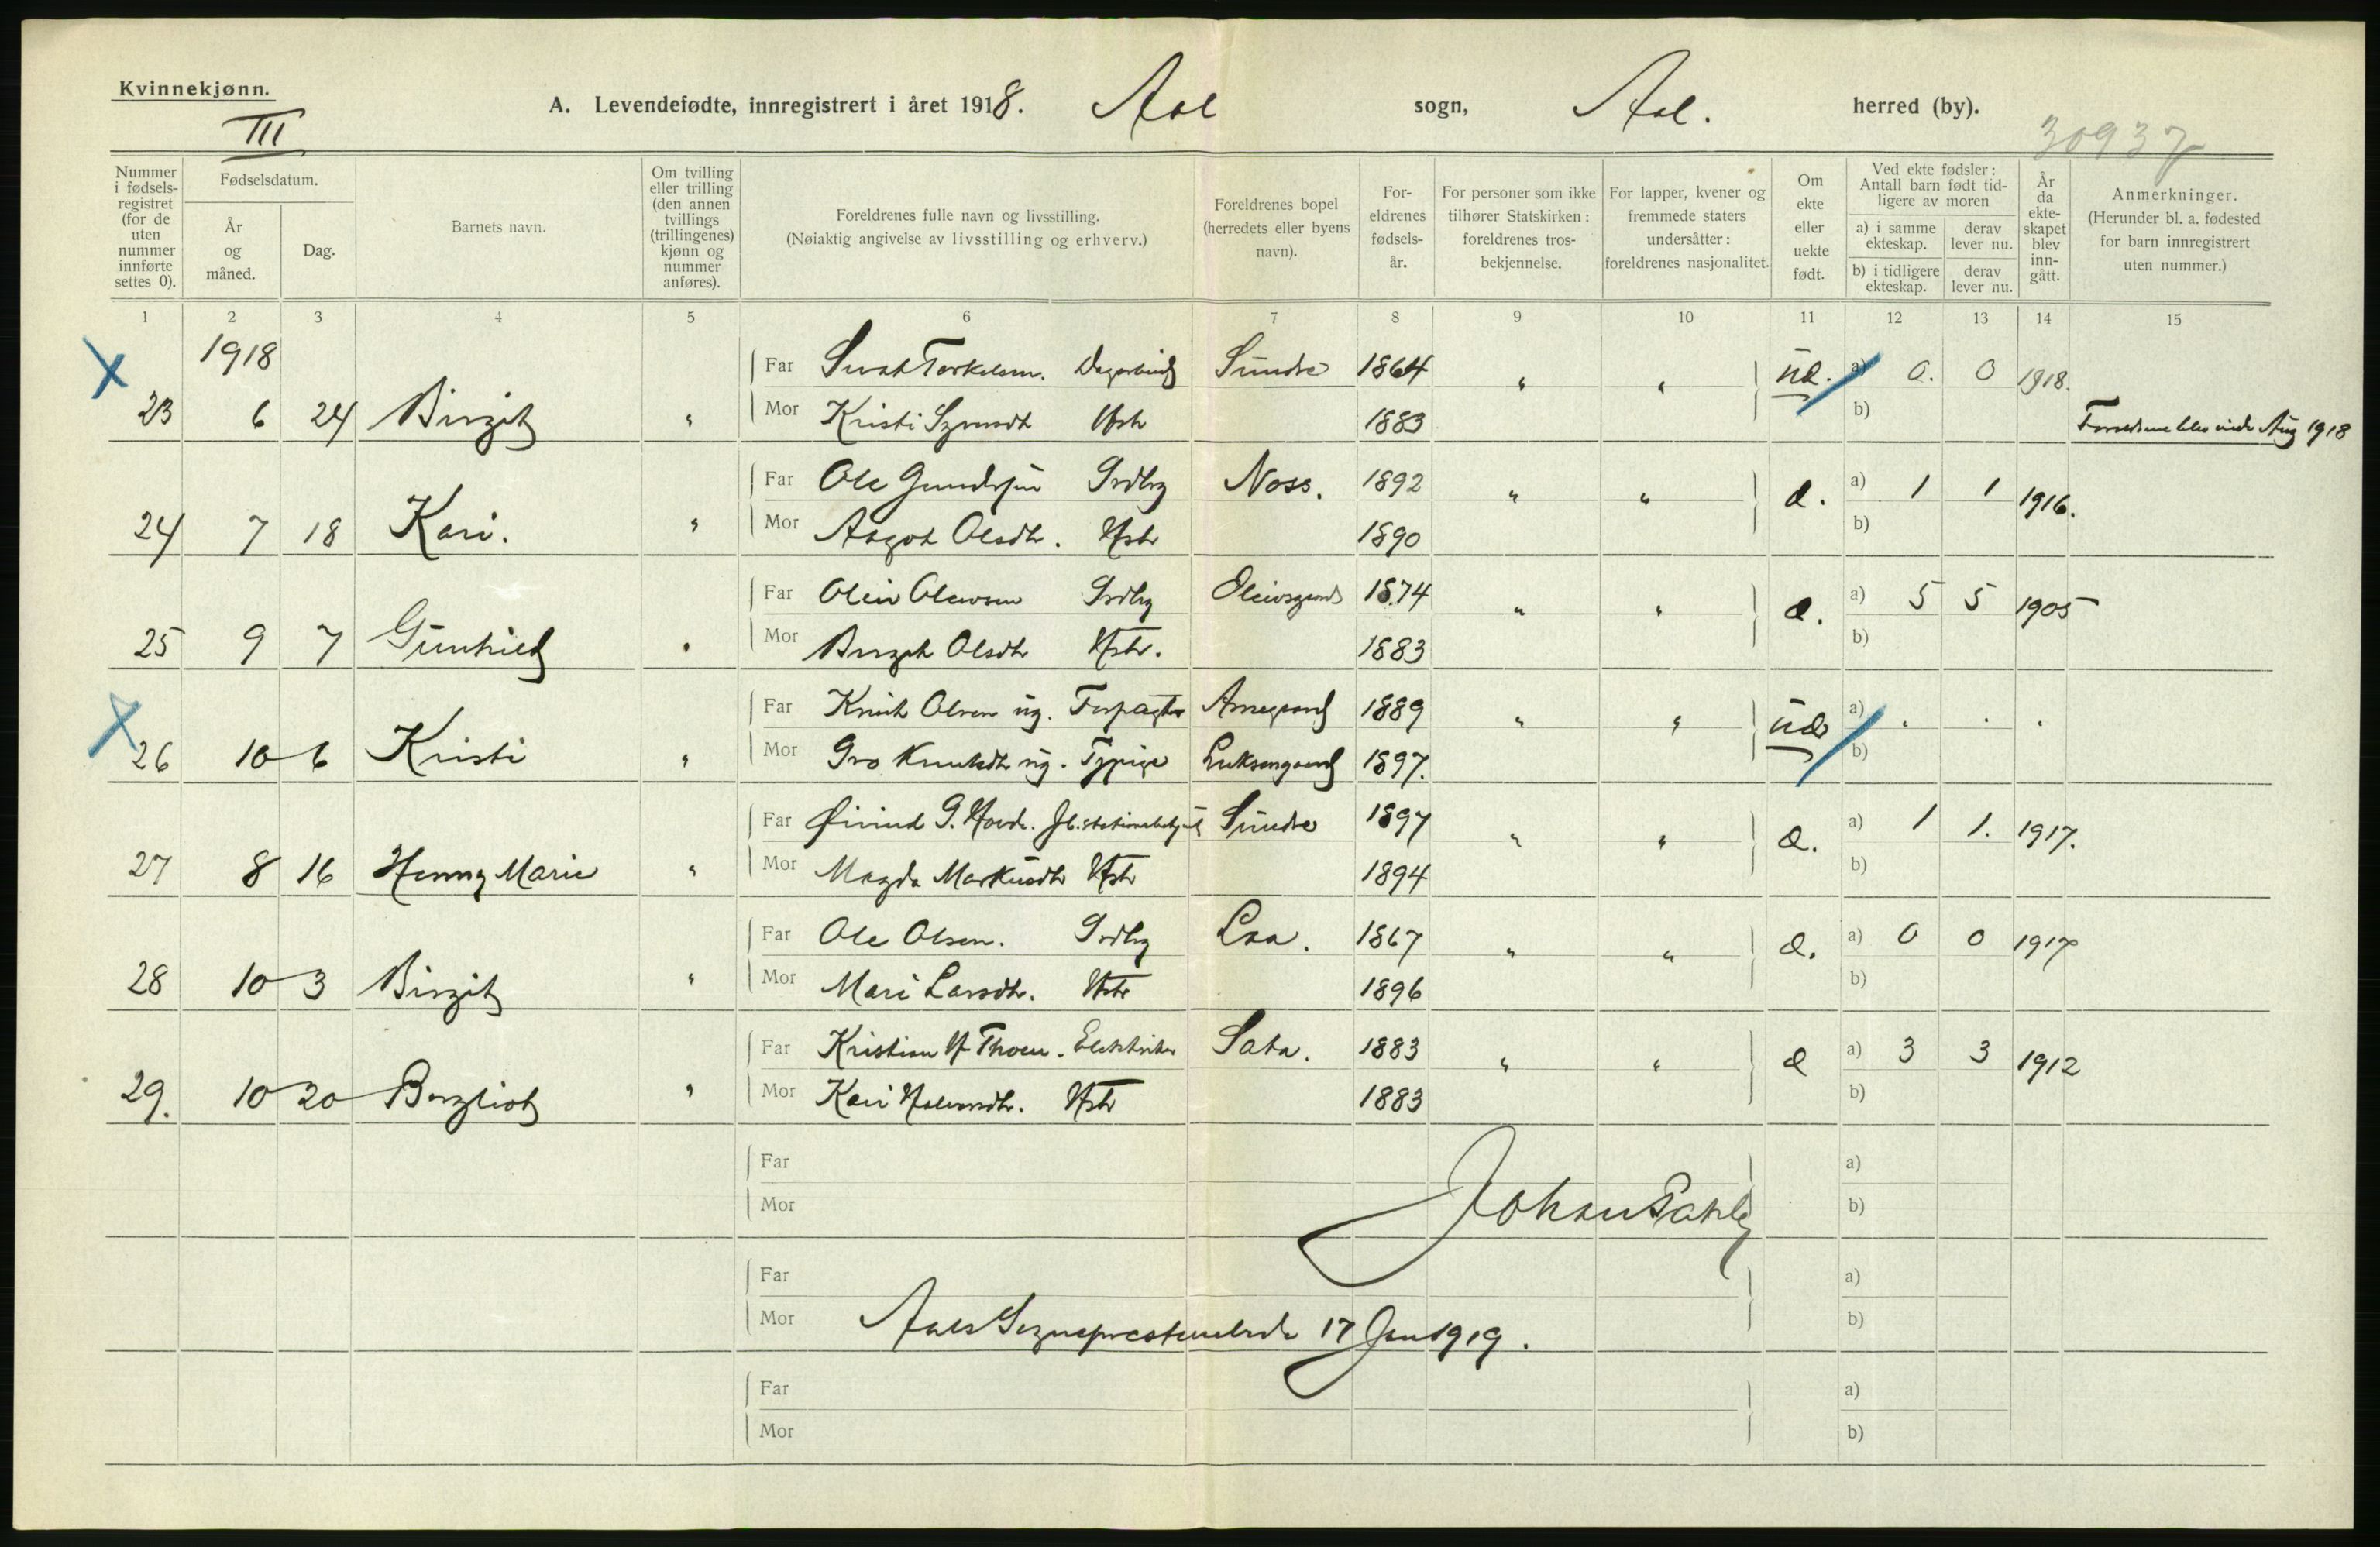 Kvinnekjønn.
III
A. Levendefødte, innregistrert i året 1918. Aal sogn, Aal. herred (by).
30937
Nummer i fødsels-registret (for de uten nummer innførte settes 0).
Fødselsdatum.
År og måned.
Dag.
Barnets navn.
Om tvilling eller trilling (den annen tvillings (trillingenes) kjønn og nummer anføres).
Foreldrenes fulle navn og livsstilling.
(Nøiaktig angivelse av livsstilling og erhverv.)
Foreldrenes bopel (herredets eller byens navn).
For-eldrenes fødsels-år.
For personer som ikke tilhører Statskirken: foreldrenes tros-bekjennelse.
For lapper, kvener og fremmede staters undersåtter: foreldrenes nasjonalitet.
Om ekte eller uekte født.
Ved ekte fødsler: Antall barn født tid-ligere av moren
a) i samme ekteskap.
derav lever nu.
b) i tidligere ekteskap.
derav lever nu.
År da ekte-skapet blev inn-gått.
Anmerkninger.
(Herunder bl. a. fødested for barn innregistrert uten nummer.)
1 2 3 4 5 6 7 8 9 10 11 12 13 14 15
1918
Far Torkelsen. Sundre 1864 " " a) 0. 0 1918.
23 6 24 Birgit " Mor Kristi Hstr 1883 b) Aug 1918
Far Ole Grdbrg Noss. 1892 " " a) 1 1 1916.
24 7 18 Kari. " Mor Aagot Olsdtr. Hstr 1890 b)
Far Grdbrg 1874 " " a) 5 5 1905
25 9 7 Gunhild " Mor Birgit Olsdtr Hstr. 1883 b)
Far Knut Olsen ug. Forpagter 1889 " " a) . . .
26 10 6 Kristi " Mor Gro Knutsdtr ug. 1897. b)
Far Øivind G. Sundre 1897 " " a) 1 1. 1917.
27 8 16 Henny Marie " Mor Magda Markusdtr Hstr 1894 b)
Far Ole Olsen. Grdbrg 1867 " " a) 0 0 1917
28 10 3 Birgit " Mor Mari Larsdtr. Hstr 1896 b)
Far Kristian H Thoen. Elektriker Sata. 1883 " " a) 3 3 1912
29. 10 20 Bergliot " Mor Kari Hstr 1883 b)
Far a)
Mor Johan b)
Far a)
Mor Aals 17 Jan 1919. b)
Far a)
Mor b)